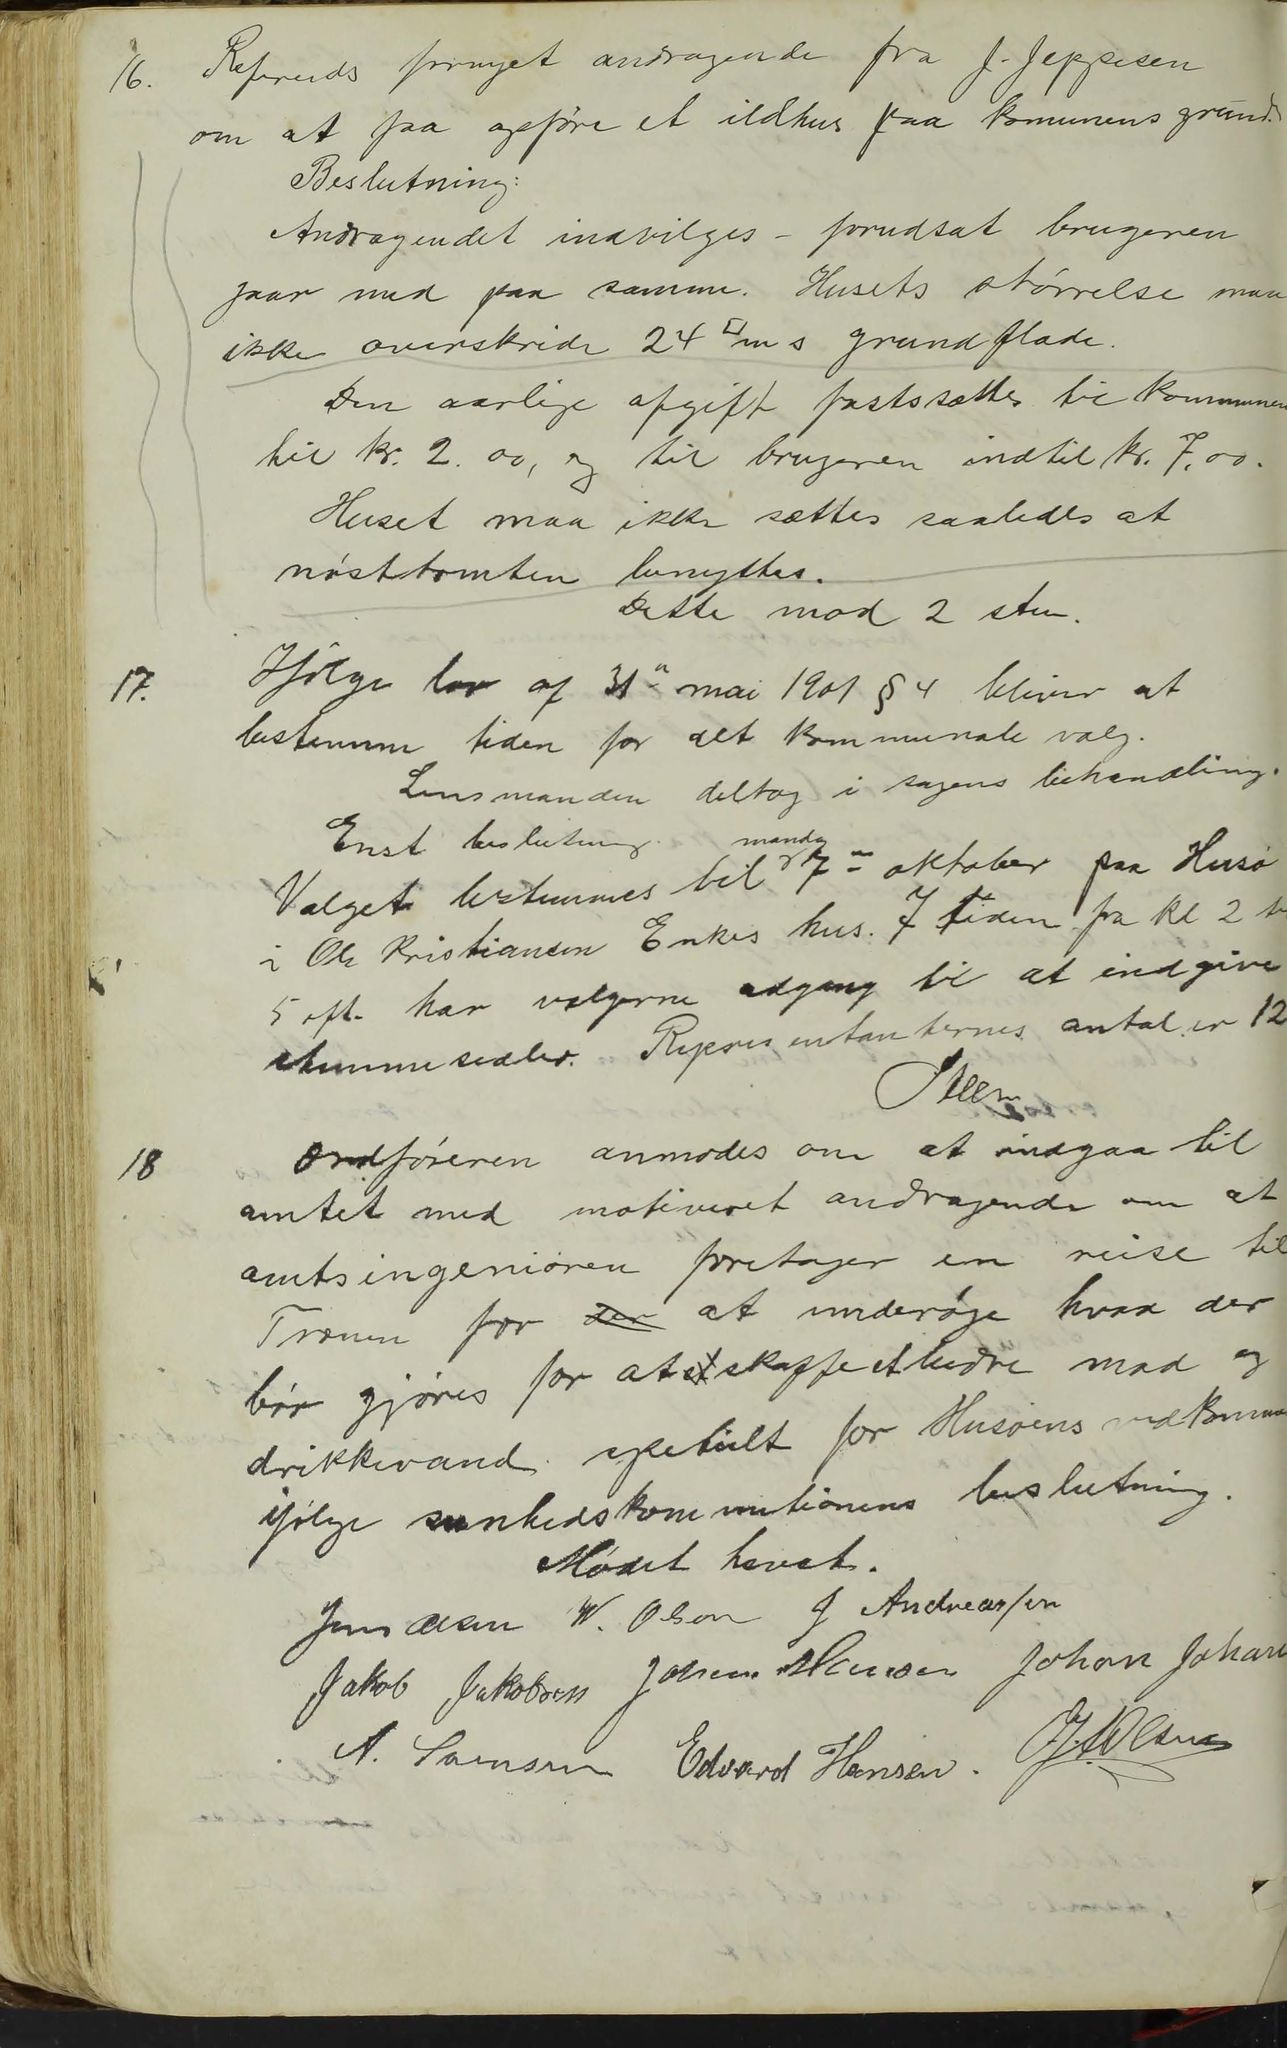 16. Refereeds fornyet andragende fra J. Jeppesen
om at faa opføre et ildhus paa komunens grund.
Beslutning:
Andragendet indvilges - forudsat brugeren
gaar med paa samme. Husets størrelse maa
ikke overskride 24 □m s grundflade.
Den aarlige afgift fastsættes til kommunen
til kr. 2.00, og til brugeren indtil kr. 7,00.
Huset maa ikke sættes saaledes at
nøsttomten benyttes.
Dette mod 2 stem.
17. Ifølge lov af 31te mai 1901 § 4 bliver at
bestemme tiden for det kommunale valg.
Lensmanden deltog i sagens behandling.
Enst beslutning.
mandag
Valget bestemmes til 7de oktober paa Husø
i Ole Kristiansen Enkes hus. I tiden fra kl 2 til
5 eft. har vælgerne adgang til at indgive
stemmesedler. Repræsentanternes antal er 12
Steen
18 Ordføreren anmodes om at indgaa til
amtet med motiveret andragende om at
amtsingeniøren foretager en reise til
Trænen for der at undersøge hvad der
bør gjøres for at skaffe et bedre mad og
drikkevand specielt for Husøens vedkommende
ifølge sunhedskommitionens beslutning.
Mødet hævet.
Jens Olsen W. Olsen J Andreassen
Jakob Jakobsen Johan Hansen Johan Johans
A. Sørensen Edvard Hansen. J. A. Olsen